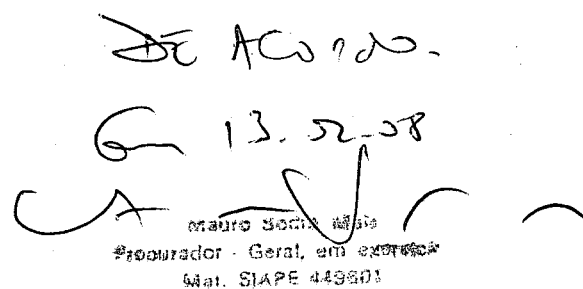 De Acordo.
Em 13.02.08
Mauro Sodré Maia
Procurador - Geral, em exercício
Mat. SIAPE 449601